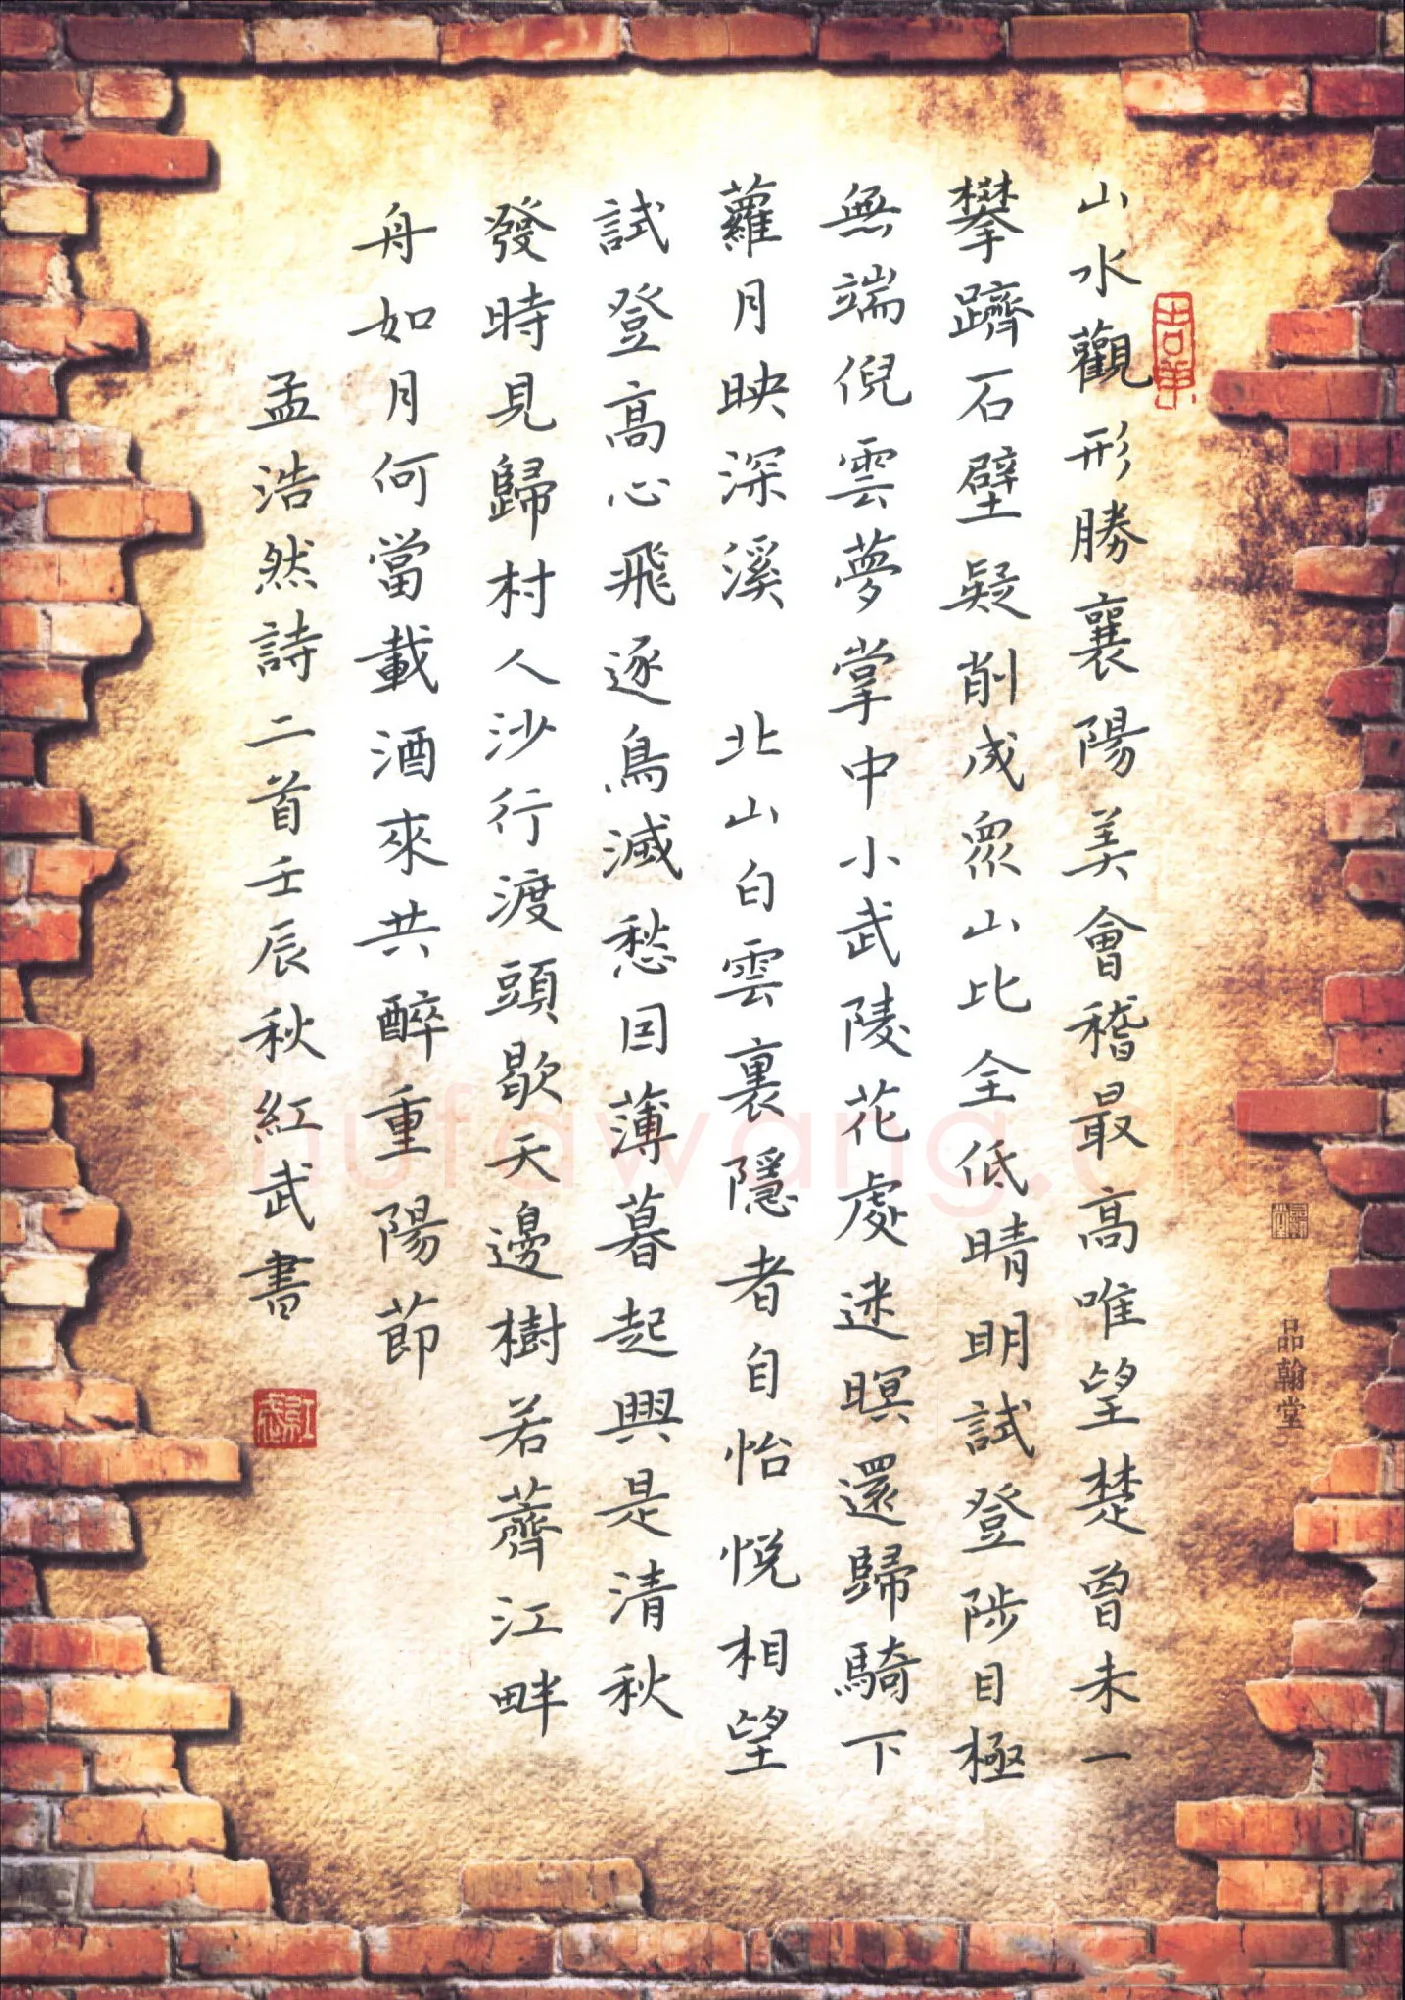 山水觀形勝襄陽美會稽最高唯望楚曾未一
攀躋石壁疑削成眾山比全低晴明試登陟目極
無端倪雲夢掌中小武陵花處迷暝還歸騎下
蘿月映深溪 北山白雲裏隱者自怡悅相望
試登高心飛逐鳥滅愁因薄暮起興是清秋
發時見歸村人沙行渡頭歇天邊樹若薺江畔
舟如月何當載酒來共醉重陽節
孟浩然詩二首壬辰秋紅武書
紅武
品翰堂
shufawang.cn